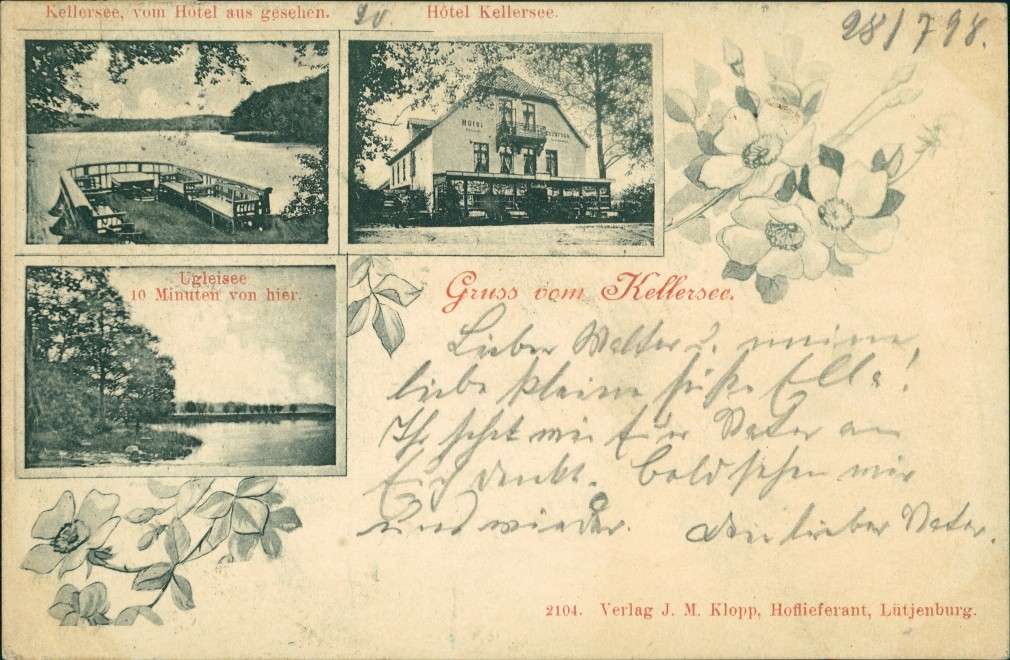 Kellersee, vom Hôtel aus gesehen.
Hôtel Kellersee.
28/7 98.
HOTEL
Ugleisee
10 Minuten von hier.
Gruss vom Kellersee.
Lieber Walter u. meine
liebe kleine süße Ella!
Ihr seht wie Eur Vater an
Euch denkt. Bald sehen wir
uns wieder. Dein lieber Vater.
2104. Verlag J. M. Klopp, Hoflieferant, Lütjenburg.